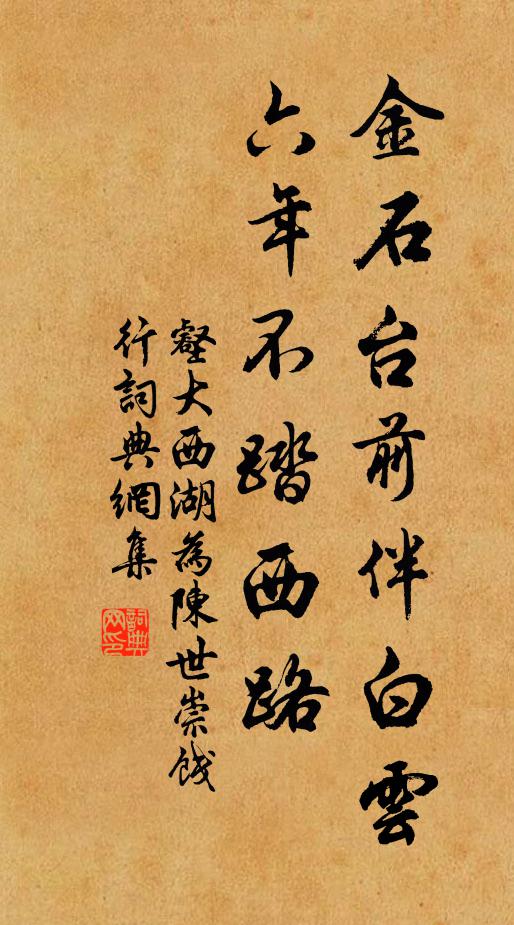 金石台前伴白雲
六年不踏西路
壑大西湖為陳世崇餞
行詞典網集
詞典
网印